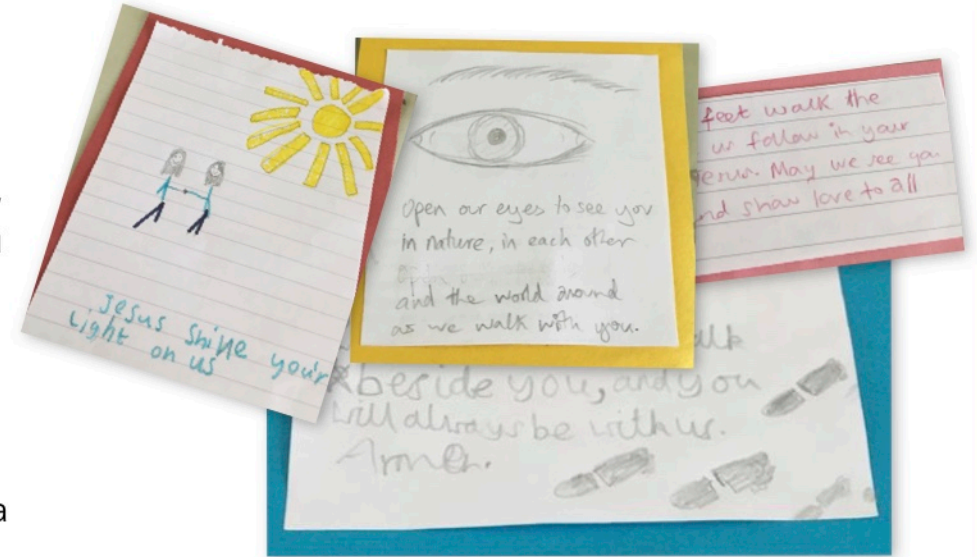 Jesus shine your
Light on us
Open our eyes to see you
in nature, in each other
and the world around
as we walk with you.
feet walk the
us follow in your
Jesus. May we see you
and show love to all
beside you, and you
will always be with us.
Amen.
a